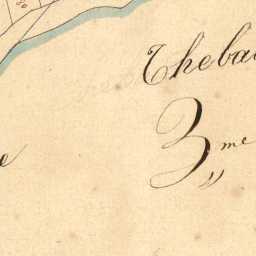 Theba
e
3me